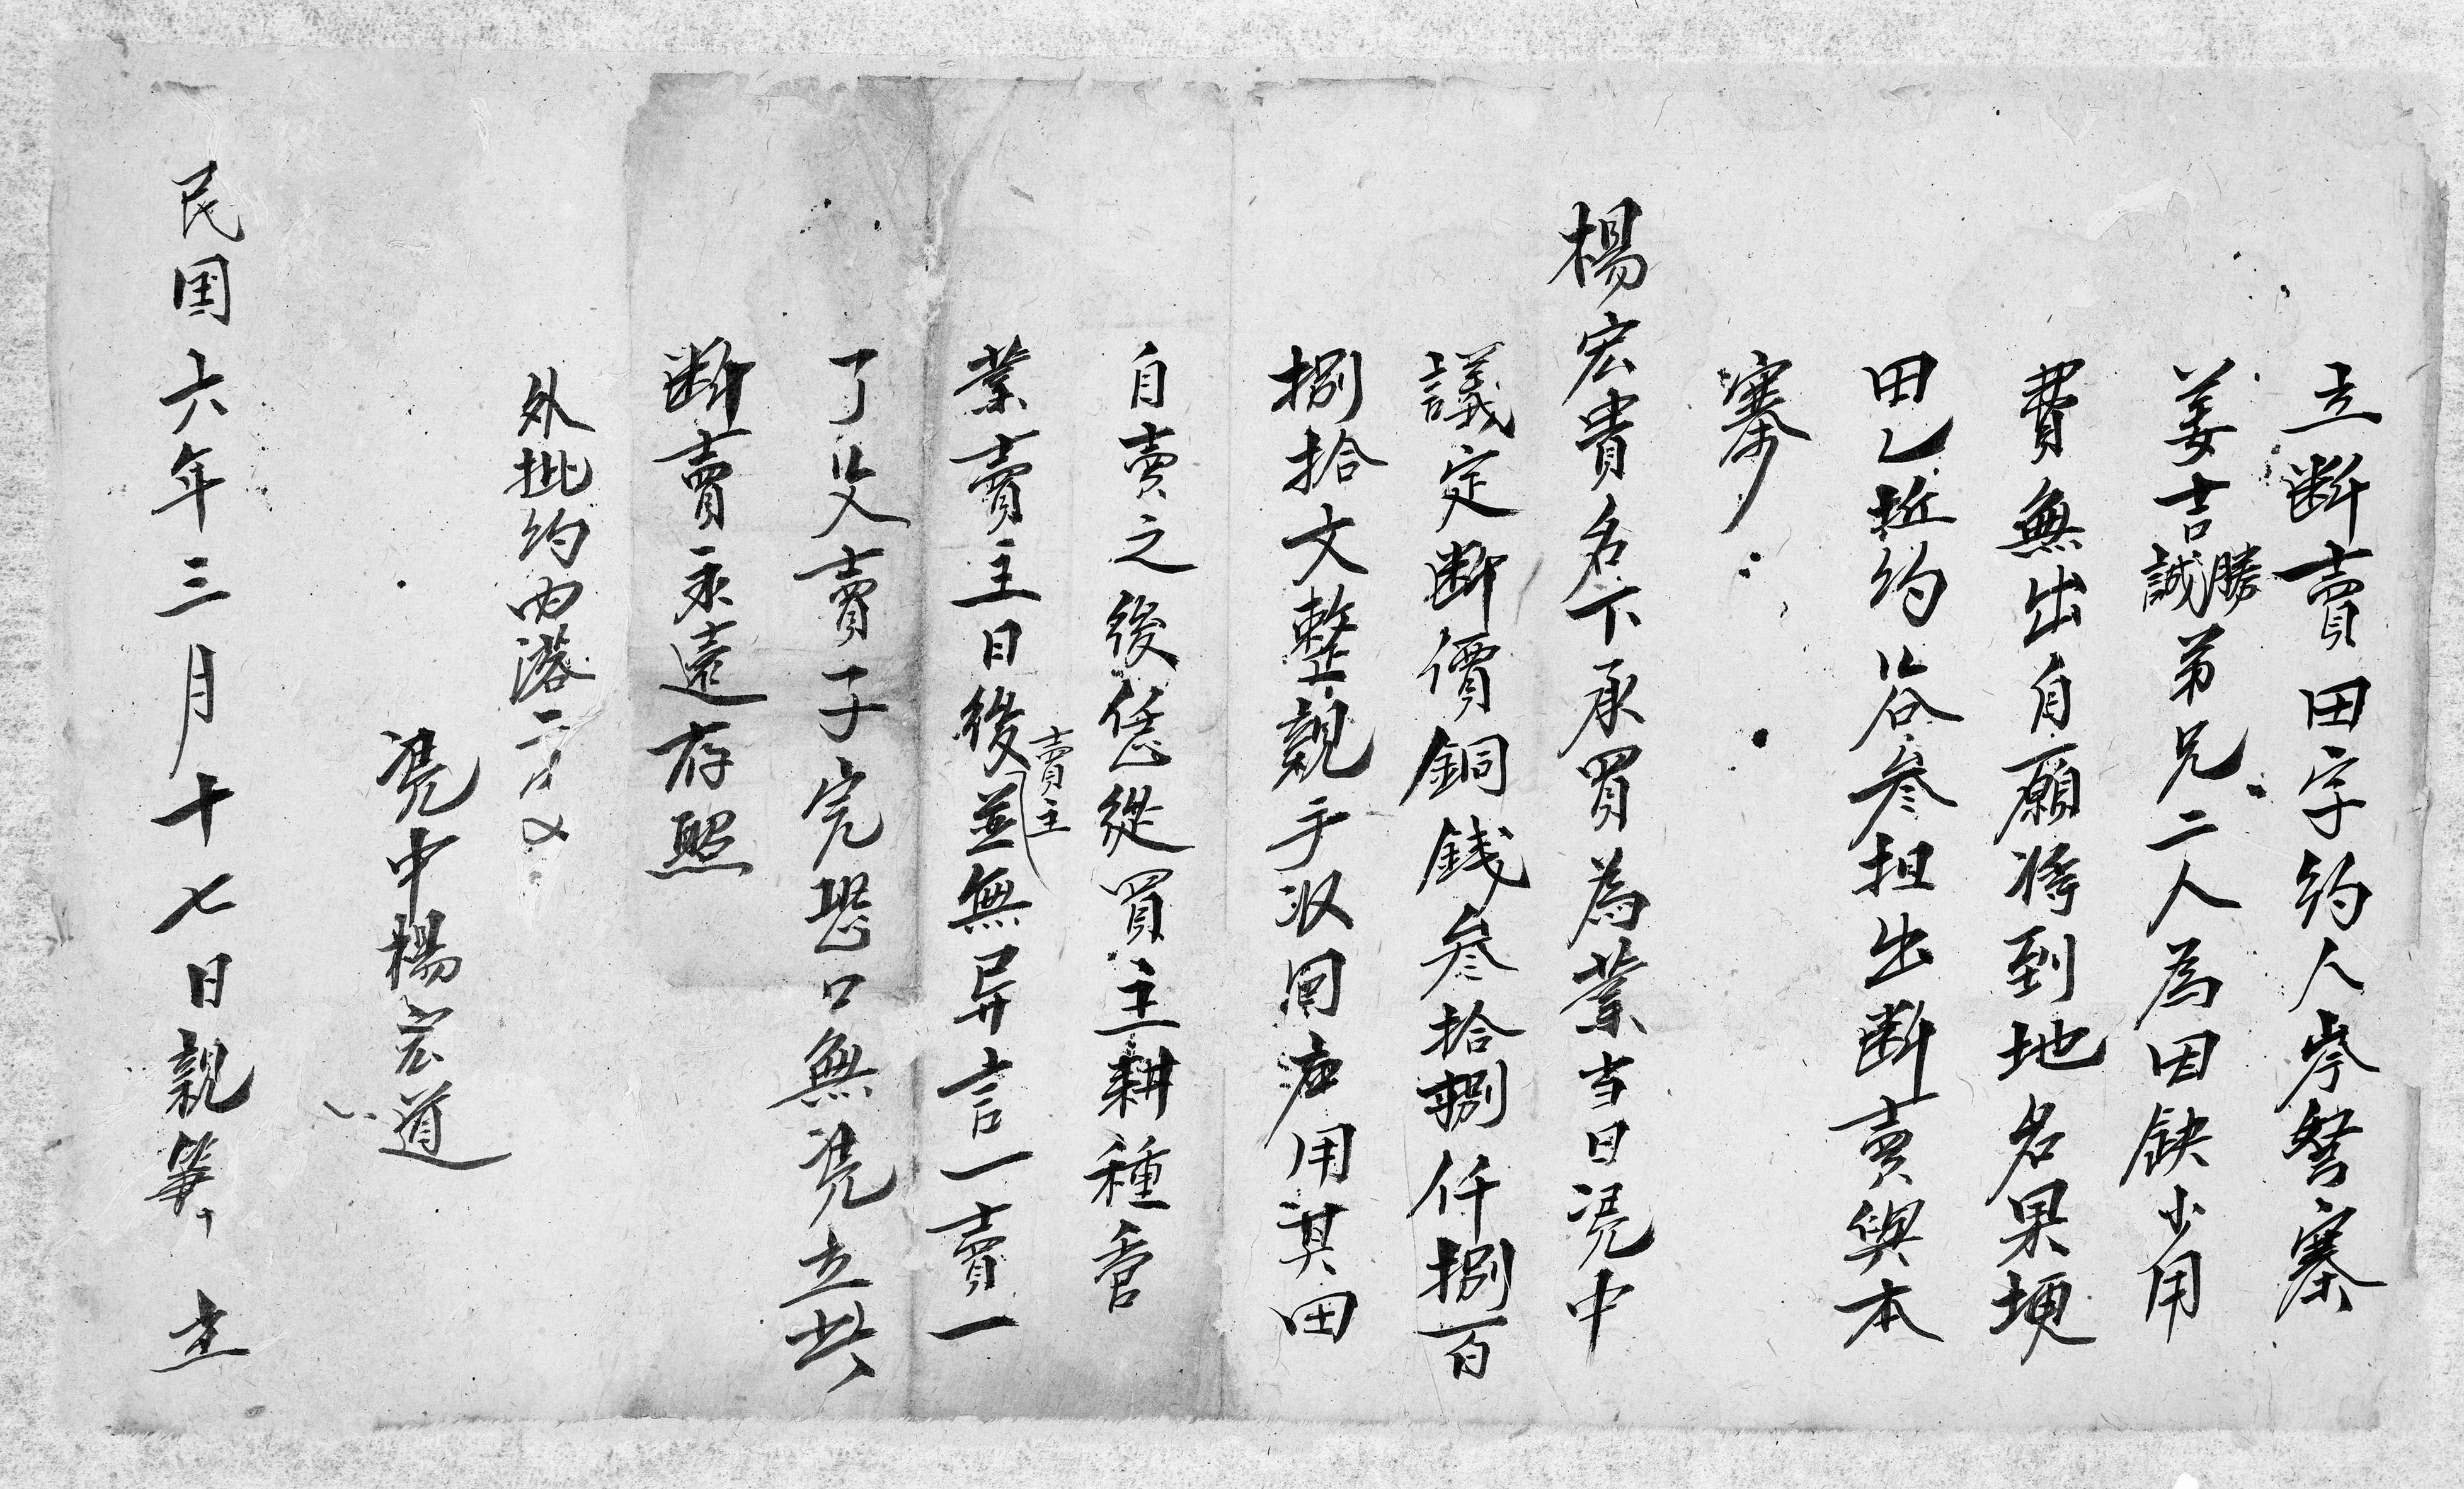 立断賣田字約人岑努寨
姜吉勝誠弟兄二人為因缺少用
費無出自願将到地名果埂
田乙坵約谷叁担出断賣與本
寨
楊宏貴名下承買為業当日凴中
議定断價銅錢叁拾捌仟捌百
捌拾文整親手収回应用其田
自賣之後恁從買主耕種管
業賣主日後賣主並無异言一賣一
了父賣子完恐口無凴立此
断賣永遠存照
外批約内落二字
凴中楊宏道
民国六年三月十七日親筆立